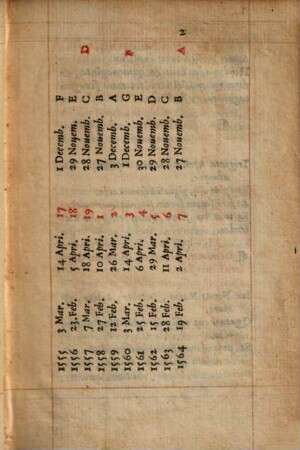 2
1555 3 Mar. 14 Apri. 17 1 Decemb. F
1556 23. Feb. 5 Apri. 18 29 Nouem. E
1557 7 Mar. 18 Apri. 19 28 Nouemb. C D
1558 27 Feb. 10 Apri. 1 27 Nouemb. B
1559 12 Feb. 26 Mar. 2 3 Decemb. A
1560 3 Mar. 14 Apri. 3 1 Decemb. G F
1561 25 Feb. 6 Apri. 4 30 Nouemb. E
1562 15 Feb. 29 Mar. 5 29 Nouemb. D
1563 28 Feb. 11 Apri. 6 28 Nouemb. C
1564 19 Feb. 2 Apri. 7 27 Nouemb. B A